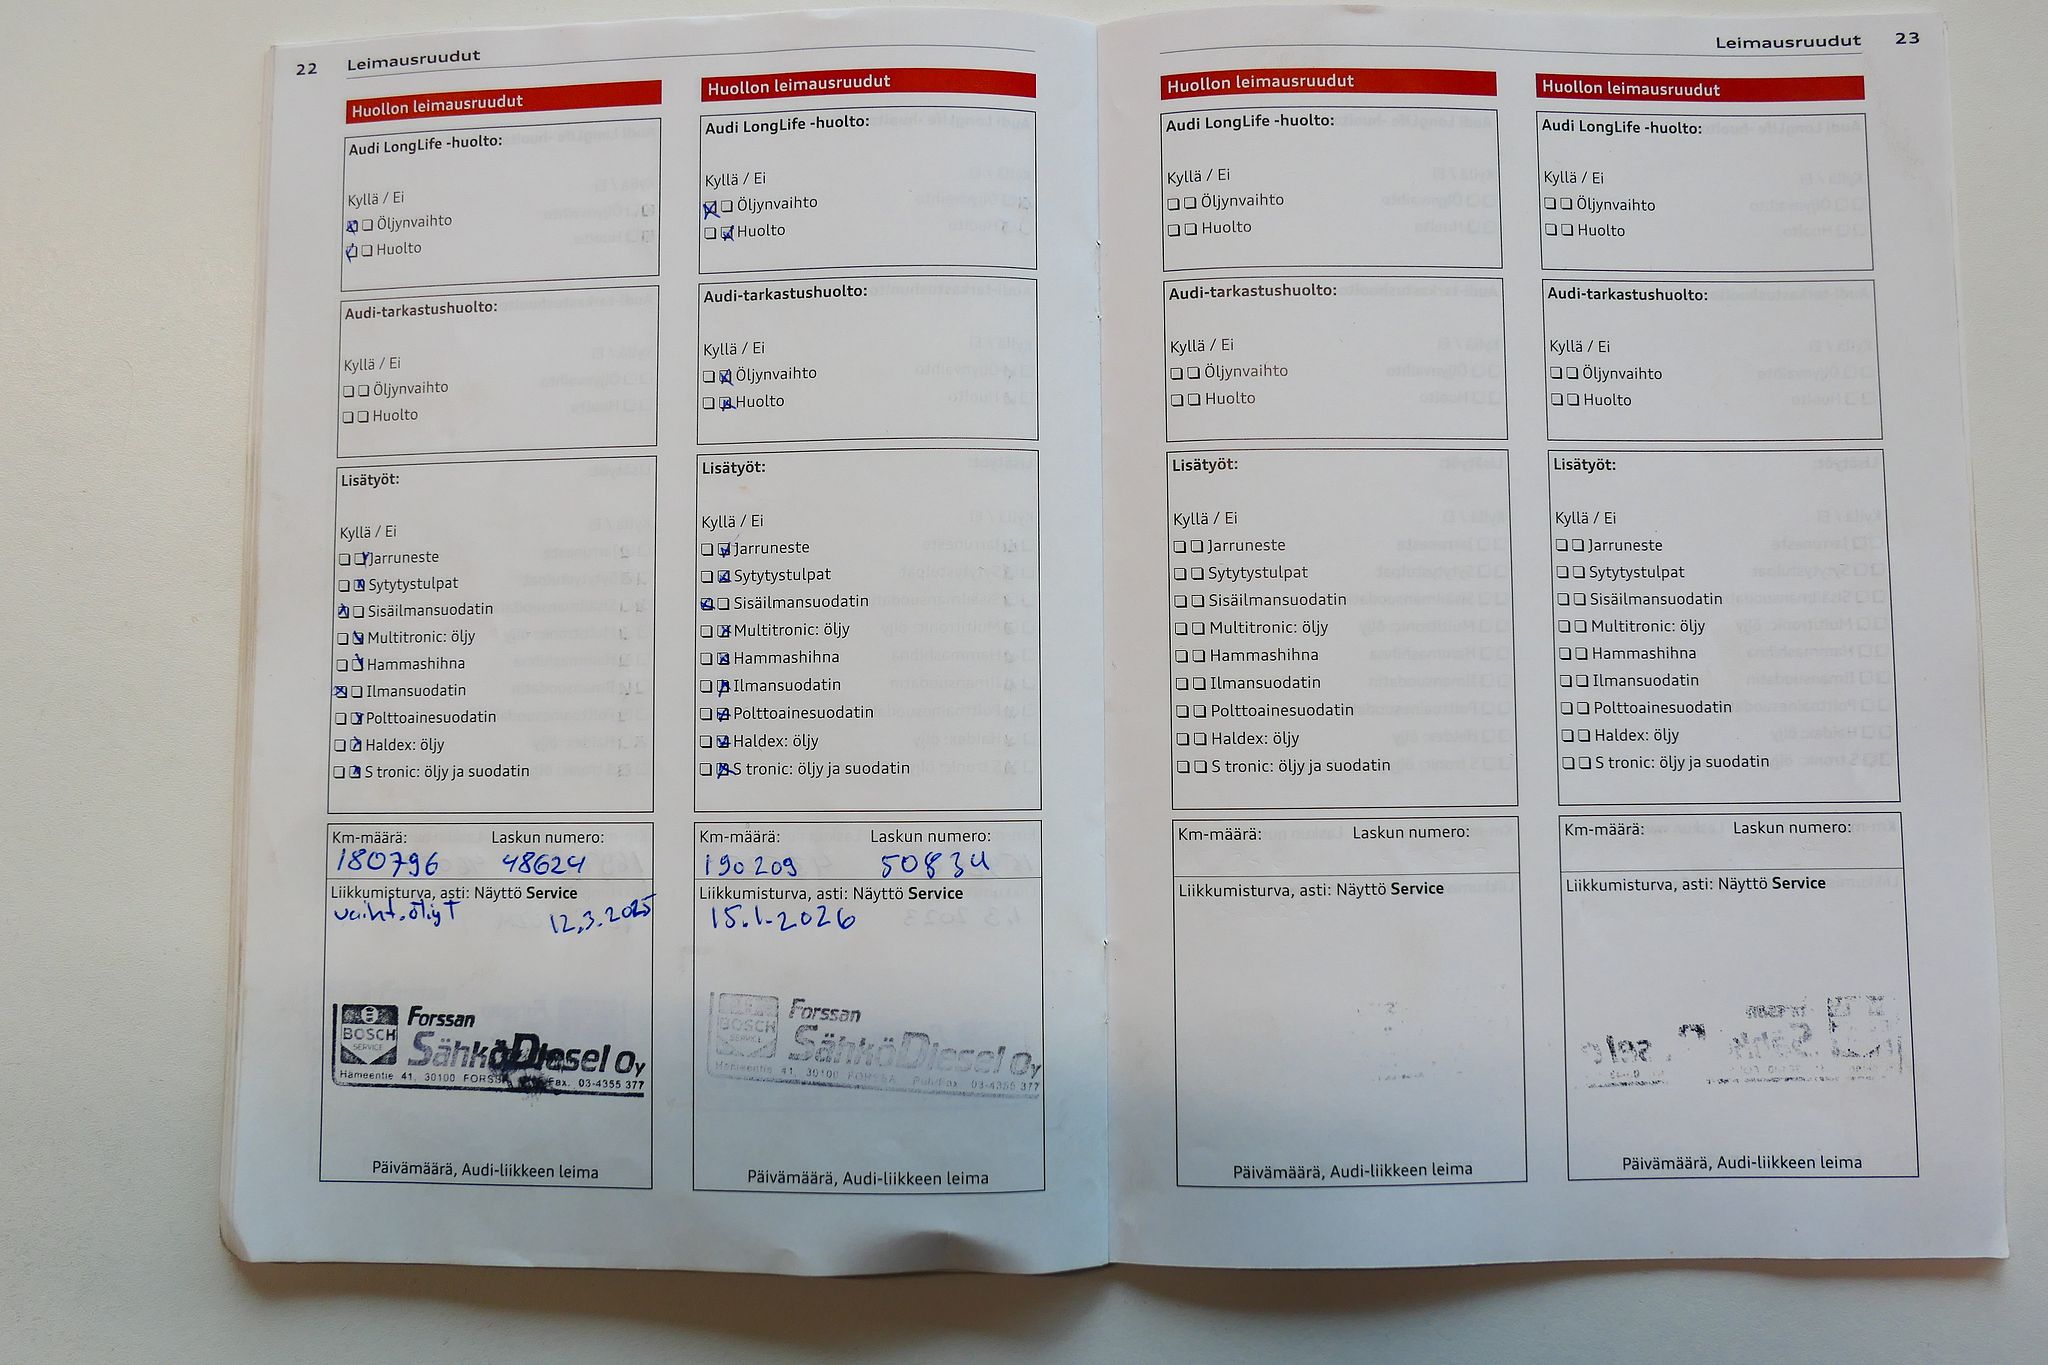 22 Leimausruudut
Huollon leimausruudut
Audi LongLife -huolto:
Kyllä / Ei
Öljynvaihto
Huolto
Audi-tarkastushuolto:
Kyllä / Ei
Öljynvaihto
Huolto
Lisätyöt:
Kyllä / Ei
Jarruneste
Sytytystulpat
Sisäilmansuodatin
Multitronic: öljy
Hammashihna
Ilmansuodatin
Polttoainesuodatin
Haldex: öljy
S tronic: öljy ja suodatin
Km-määrä: Laskun numero:
180796 48624
Liikkumisturva, asti: Näyttö Service
vaiht. öljyt 12.3.2025
BOSCH
SERVICE
Forssan
SähköDiesel Oy
Hämeentie 41, 30100 FORSSA Fax. 03-4355 377
Päivämäärä, Audi-liikkeen leima
Huollon leimausruudut
Audi LongLife -huolto:
Kyllä / Ei
Öljynvaihto
Huolto
Audi-tarkastushuolto:
Kyllä / Ei
Öljynvaihto
Huolto
Lisätyöt:
Kyllä / Ei
Jarruneste
Sytytystulpat
Sisäilmansuodatin
Multitronic: öljy
Hammashihna
Ilmansuodatin
Polttoainesuodatin
Haldex: öljy
S tronic: öljy ja suodatin
Km-määrä: Laskun numero:
190209 50834
Liikkumisturva, asti: Näyttö Service
15.1.2026
BOSCH
SERVICE
Forssan
SähköDiesel Oy
Hämeentie 41, 30100 FORSSA Puh/Fax. 03-4355 377
Päivämäärä, Audi-liikkeen leima
Leimausruudut 23
Huollon leimausruudut
Audi LongLife -huolto:
Kyllä / Ei
Öljynvaihto
Huolto
Audi-tarkastushuolto:
Kyllä / Ei
Öljynvaihto
Huolto
Lisätyöt:
Kyllä / Ei
Jarruneste
Sytytystulpat
Sisäilmansuodatin
Multitronic: öljy
Hammashihna
Ilmansuodatin
Polttoainesuodatin
Haldex: öljy
S tronic: öljy ja suodatin
Km-määrä: Laskun numero:
Liikkumisturva, asti: Näyttö Service
Päivämäärä, Audi-liikkeen leima
Huollon leimausruudut
Audi LongLife -huolto:
Kyllä / Ei
Öljynvaihto
Huolto
Audi-tarkastushuolto:
Kyllä / Ei
Öljynvaihto
Huolto
Lisätyöt:
Kyllä / Ei
Jarruneste
Sytytystulpat
Sisäilmansuodatin
Multitronic: öljy
Hammashihna
Ilmansuodatin
Polttoainesuodatin
Haldex: öljy
S tronic: öljy ja suodatin
Km-määrä: Laskun numero:
Liikkumisturva, asti: Näyttö Service
Päivämäärä, Audi-liikkeen leima